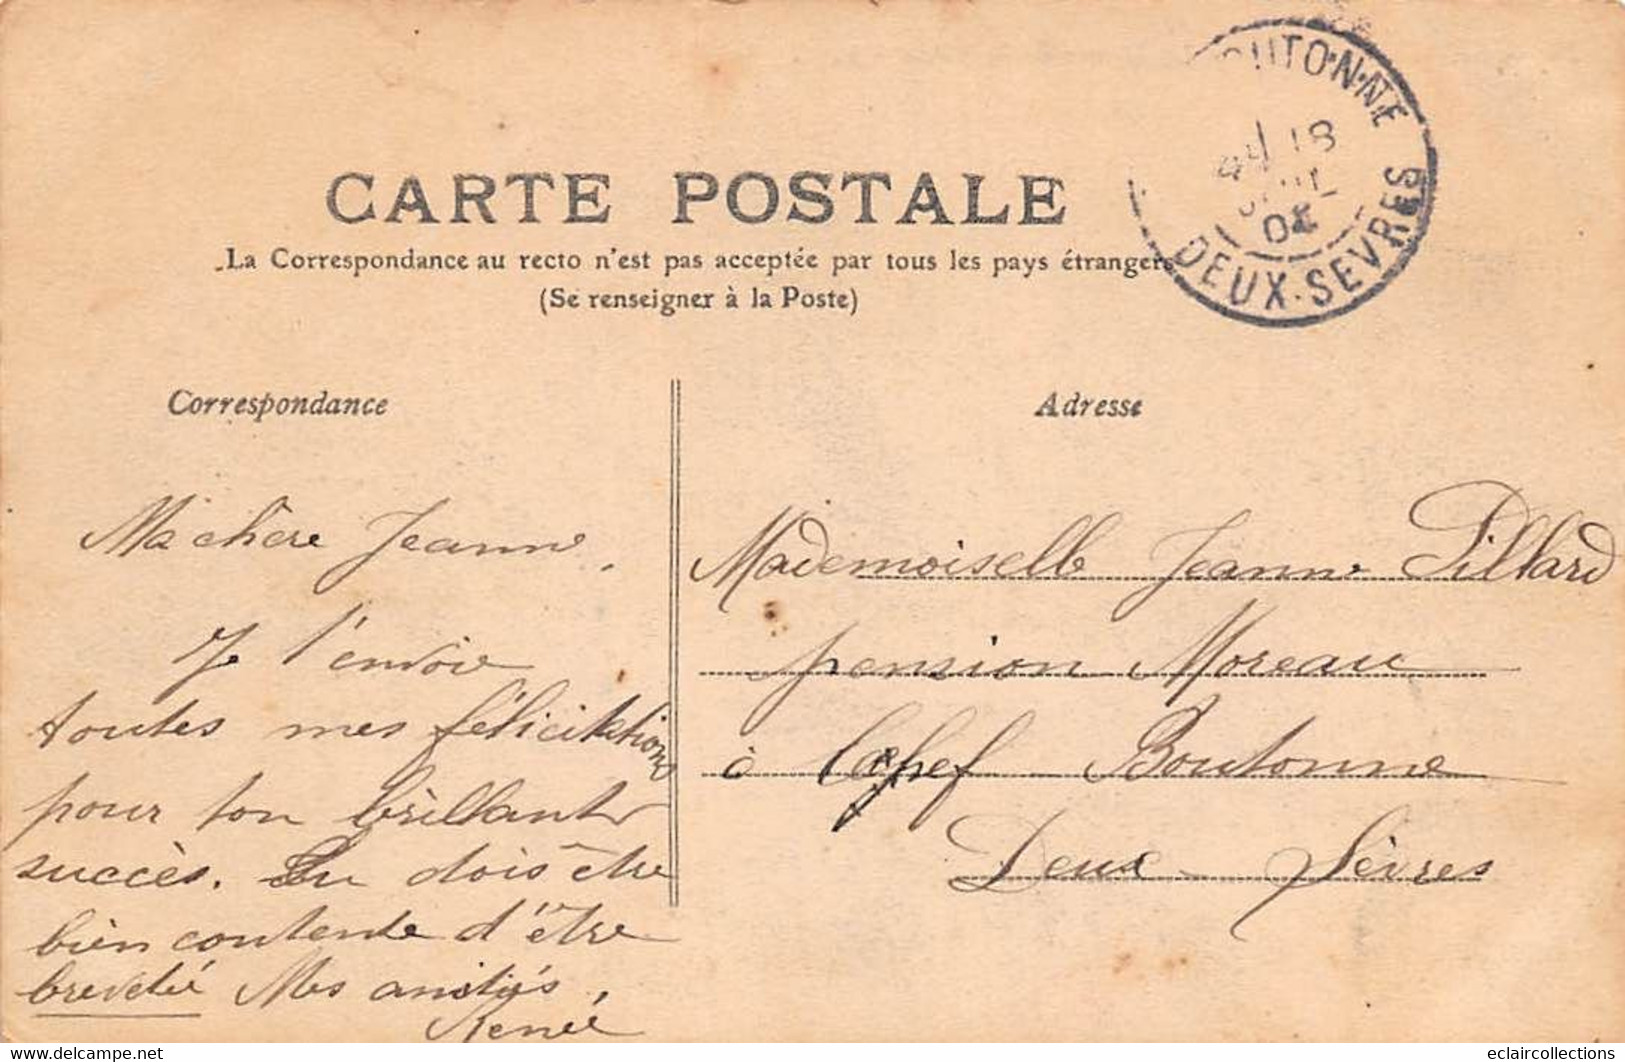 OUTONNE
18
04
DEUX-SEVRES
CARTE POSTALE
La Correspondance au recto n'est pas acceptée par tous les pays étrangers
(Se renseigner à la Poste)
Correspondance
Ma chère Jeanne,
Je t'envoie
toutes mes félicitations
pour ton brillant
succès. Tu dois être
bien contente d'être
brevetée Mes amitiés,
Renée
Adresse
Mademoiselle Jeanne Pillard
pension Moreau
à Chef Boutonne
Deux-Sèvres
www.delcampe.net
eclaircollections